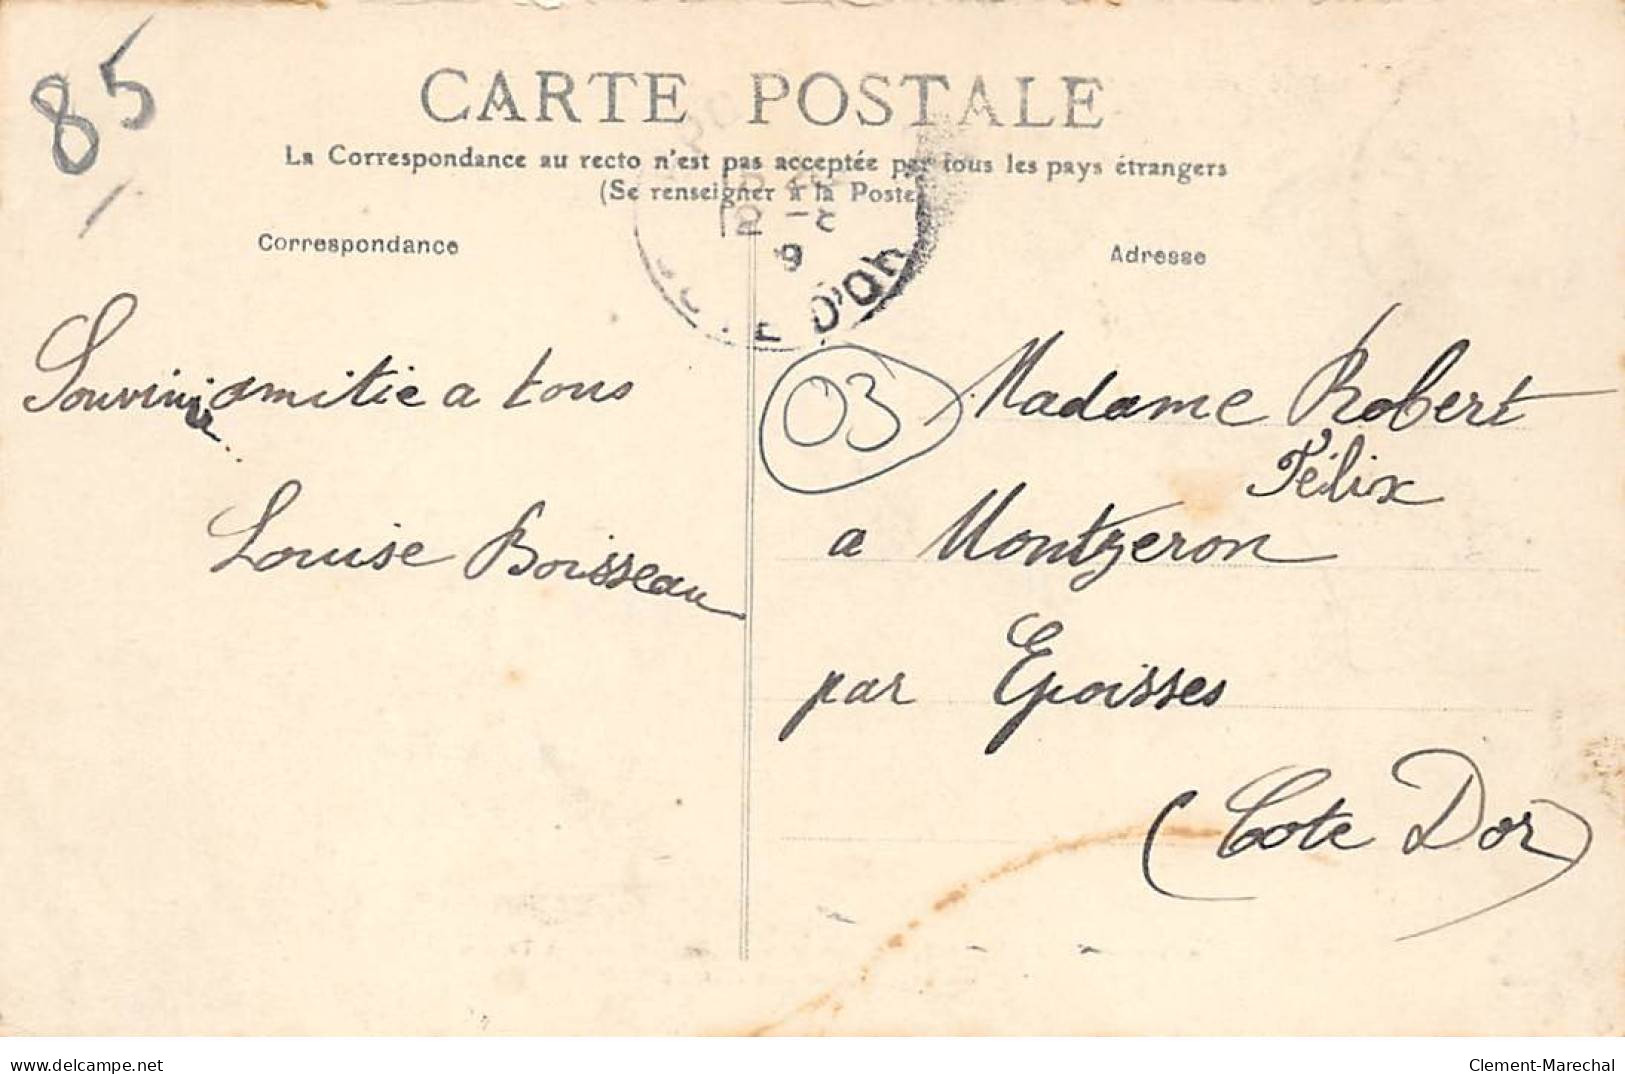 85
CARTE POSTALE
La Correspondance au recto n'est pas acceptée par tous les pays étrangers
(Se renseigner à la Poste)
12 - 8
9
COTE D'OR
Correspondance
Adresse
Souvinir amitie a tous
Louise Boisseau
03
Madame Robert
Félix
a Montzeron
par Epoisses
(Cote Dor)
www.delcampe.net
Clement-Marechal